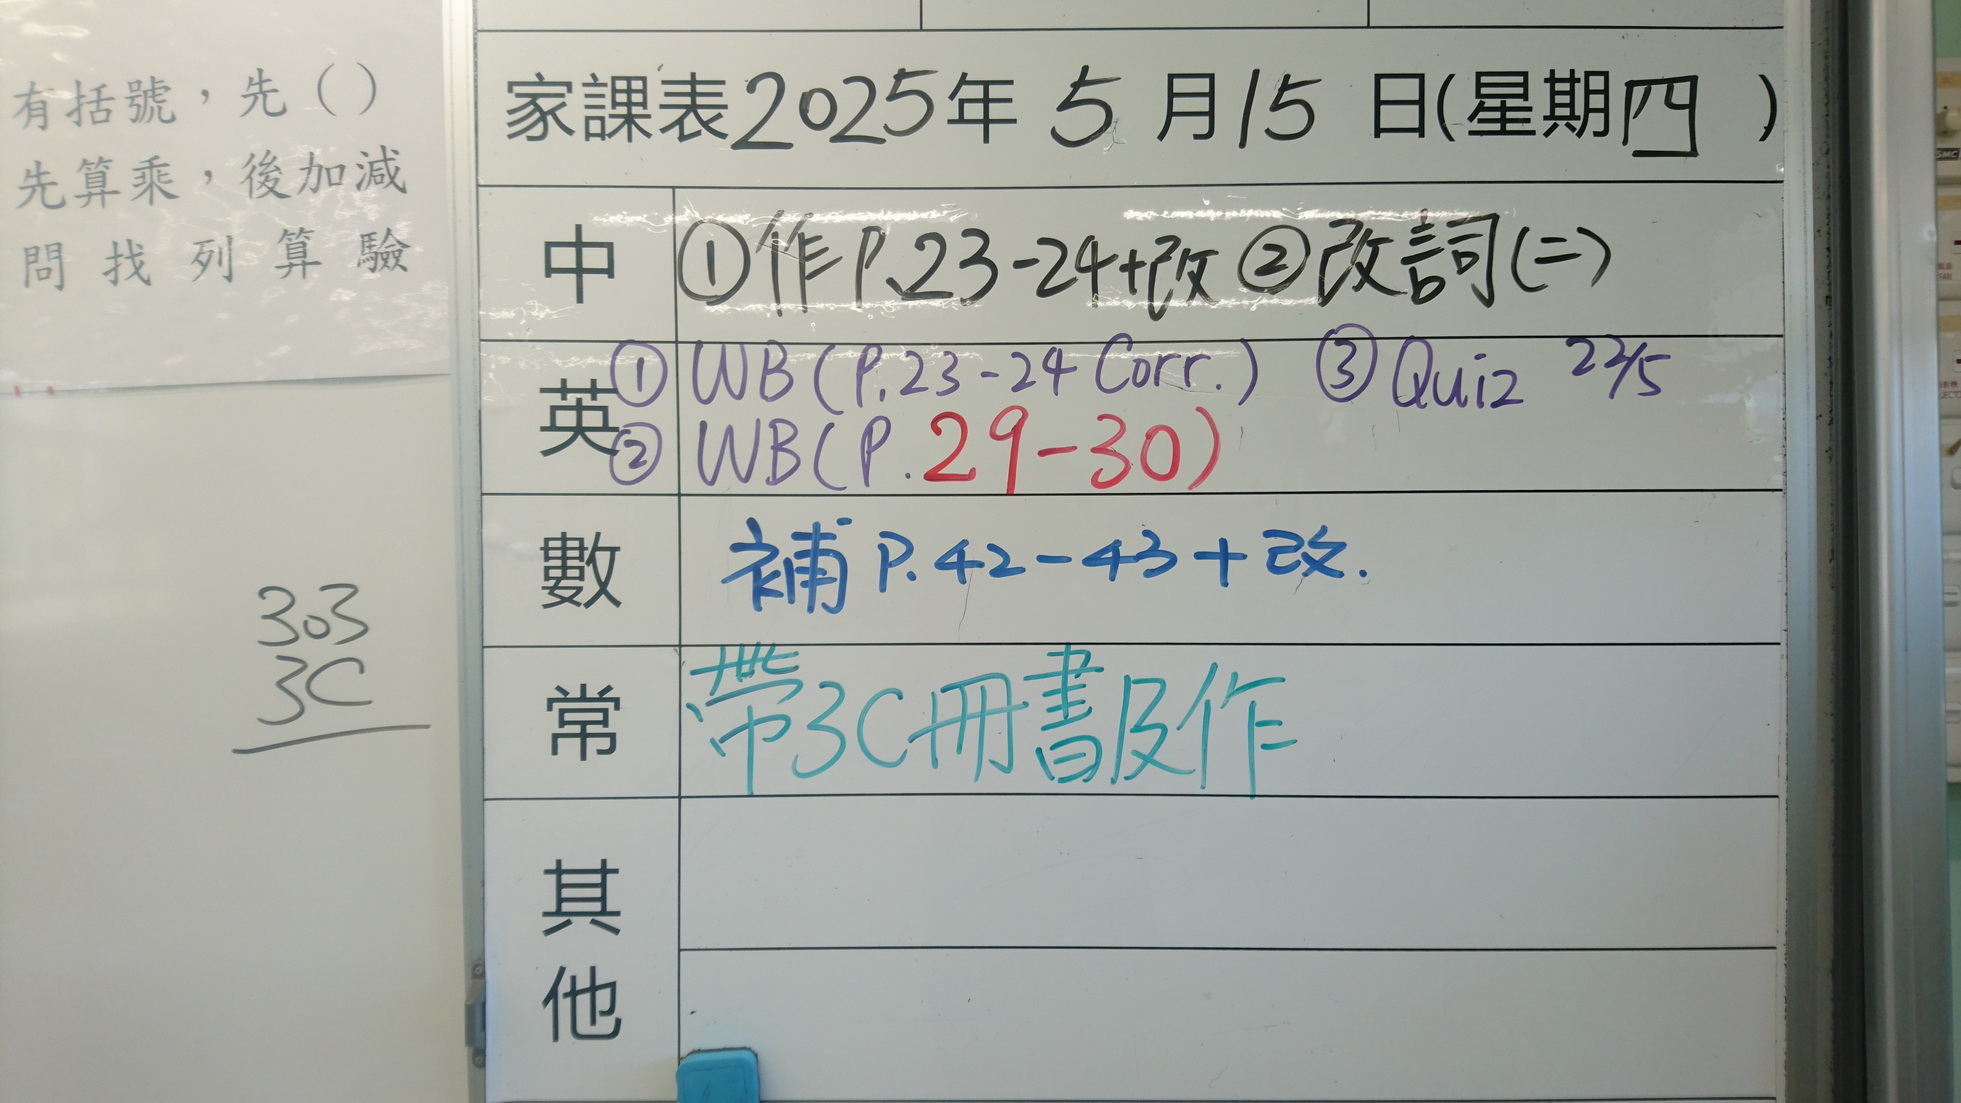 有括號，先（）
先算乘，後加減
問找列算驗
303
3C
家課表2025年 5 月 15 日(星期四 )
中 ①作P.23-24+改 ②改詞(二)
英 ① WB(P.23-24 Corr.) ③ Quiz 22/5
② WB(P.29-30)
數 補 P.42-43+改.
常 帶3C冊書及作
其他